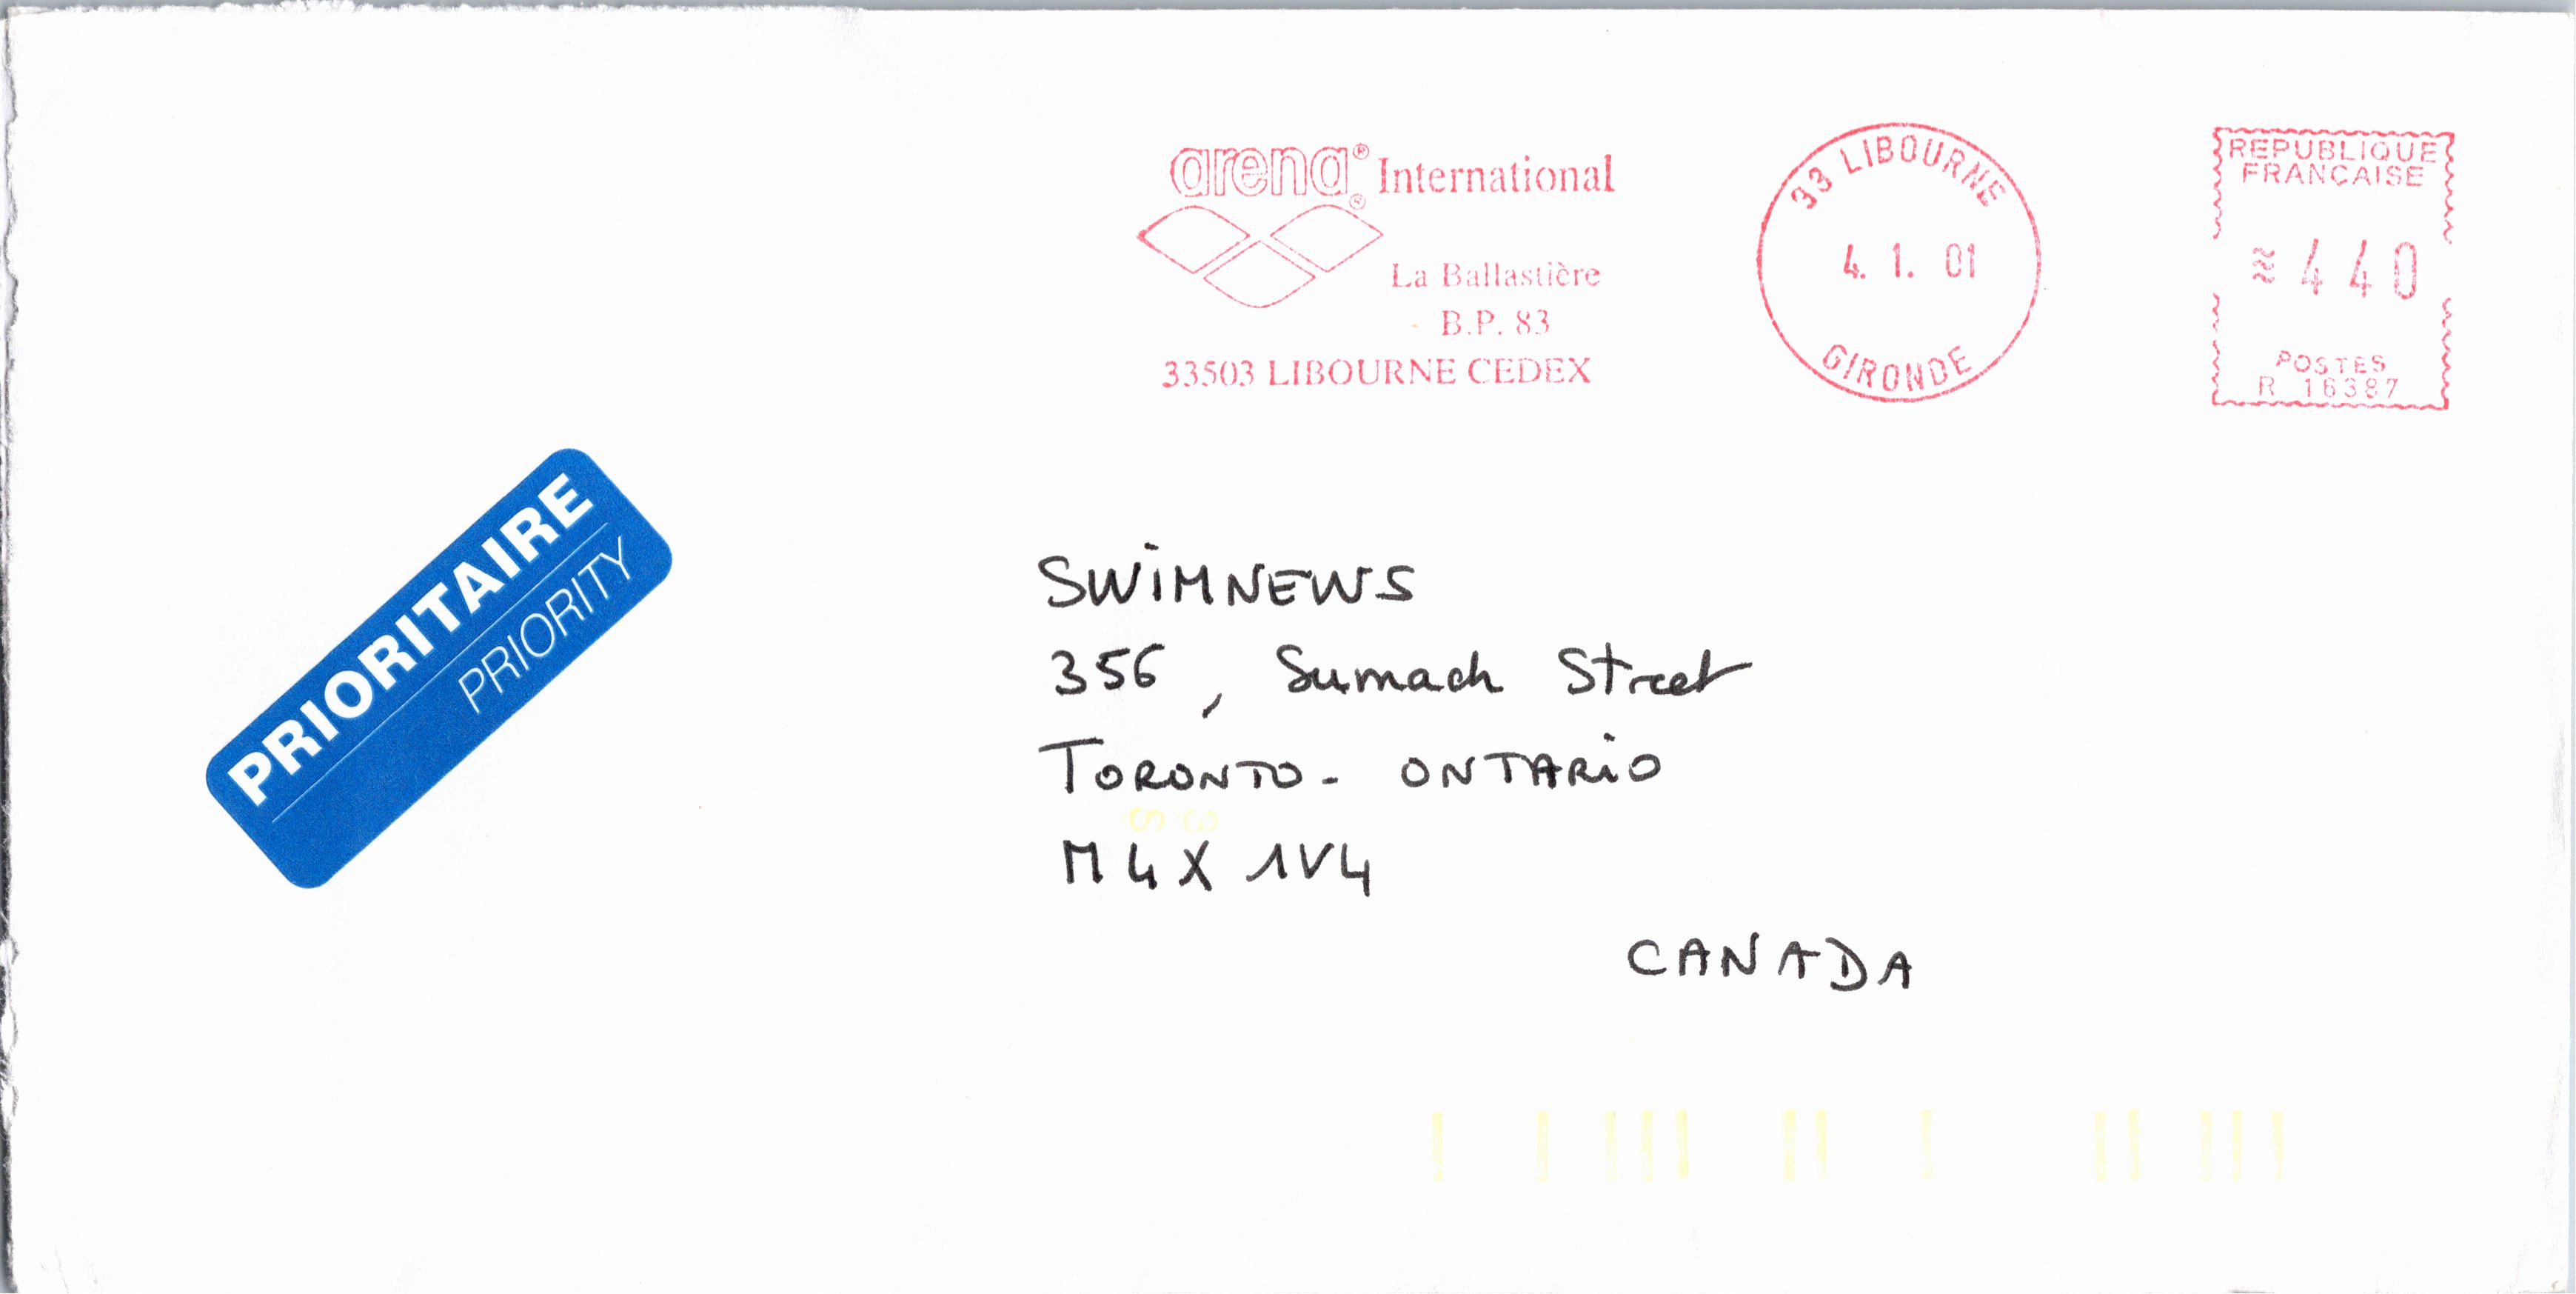 arena® International
®
La Ballastière
B.P. 83
33503 LIBOURNE CEDEX
33 LIBOURNE
4. 1. 01
GIRONDE
REPUBLIQUE
FRANÇAISE
≋ 440
POSTES
R 16387
PRIORITAIRE
PRIORITY
SWIMNEWS
356, Sumach Street
TORONTO - ONTARIO
M4X 1V4
CANADA